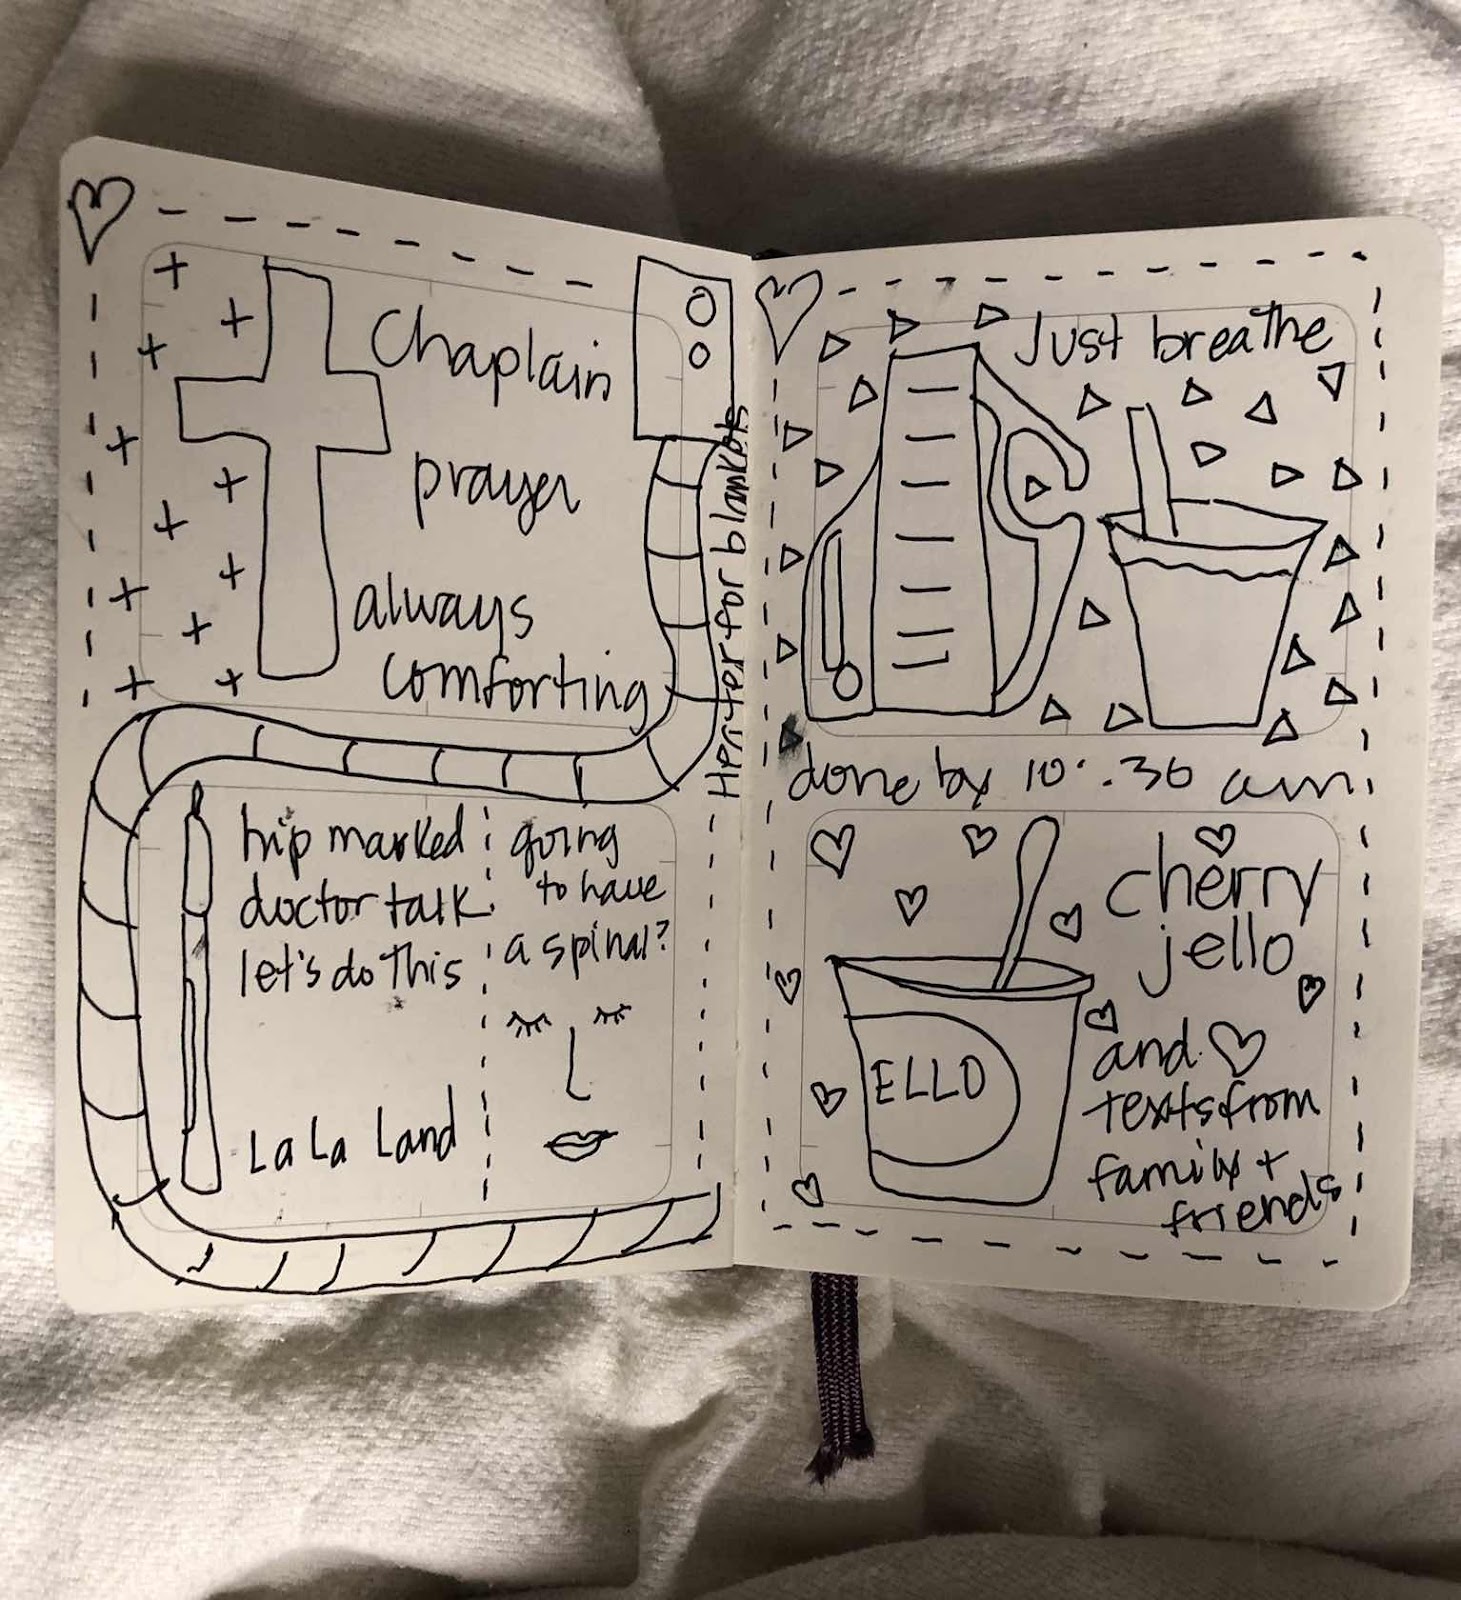 Chaplain
prayer
always
comforting
Heater for blankets
hip marked
doctor talk
let's do this
La La Land
going
to have
a spinal?
Just breathe
done by 10:30 am.
cherry
jello
ELLO
and
texts from
family +
friends